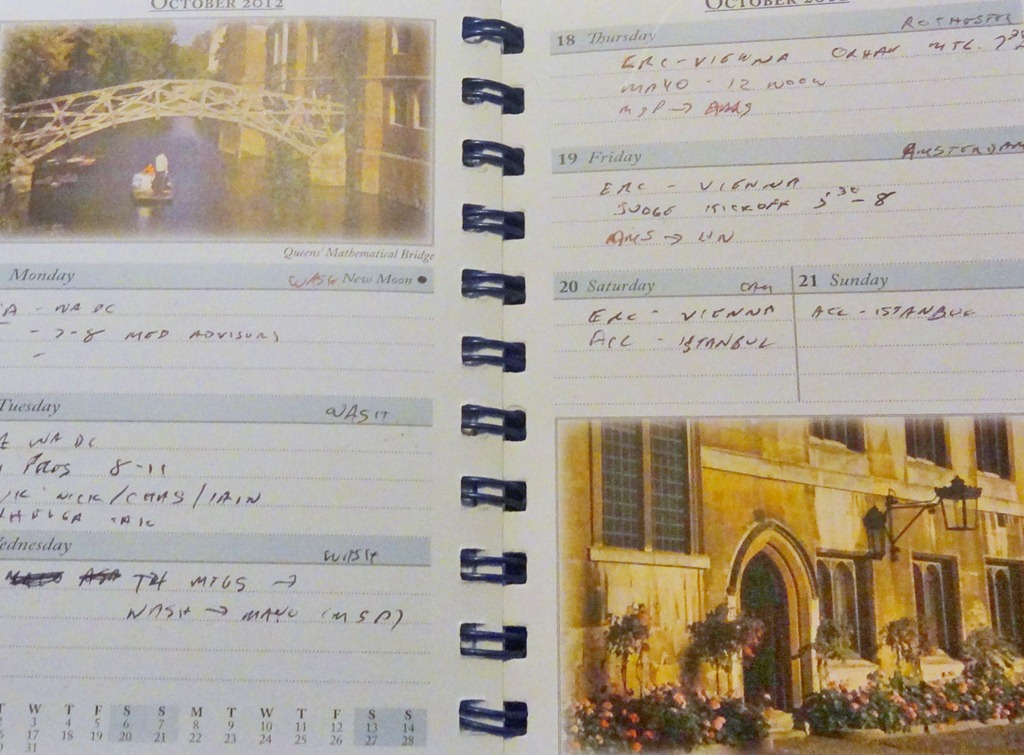 OCTOBER 2012
Queens' Mathematical Bridge
Monday WASH New Moon
- WA DC
- 7-8 MED ADVISORS
Tuesday WASH
WA DC
8-11
NICK/CHAS/IAIN
Wednesday WASH
MTGS →
WASH → MAYO (MSP)
T W T F S S M T W T F S S
3 4 5 6 7 8 9 10 11 12 13 14
17 18 19 20 21 22 23 24 25 26 27 28
31
OCTOBER
18 Thursday ROCHESTER
ERC-VIENNA ORHAN MTG.
MAYO - 12 NOON
MSP → AMS
19 Friday AMSTERDAM
ERC - VIENNA
JUDGE KICKOFF 5:30 - 8
AMS → LN
20 Saturday CAM
ERC - VIENNA
ACC - ISTANBUL
21 Sunday
ACC - ISTANBUL